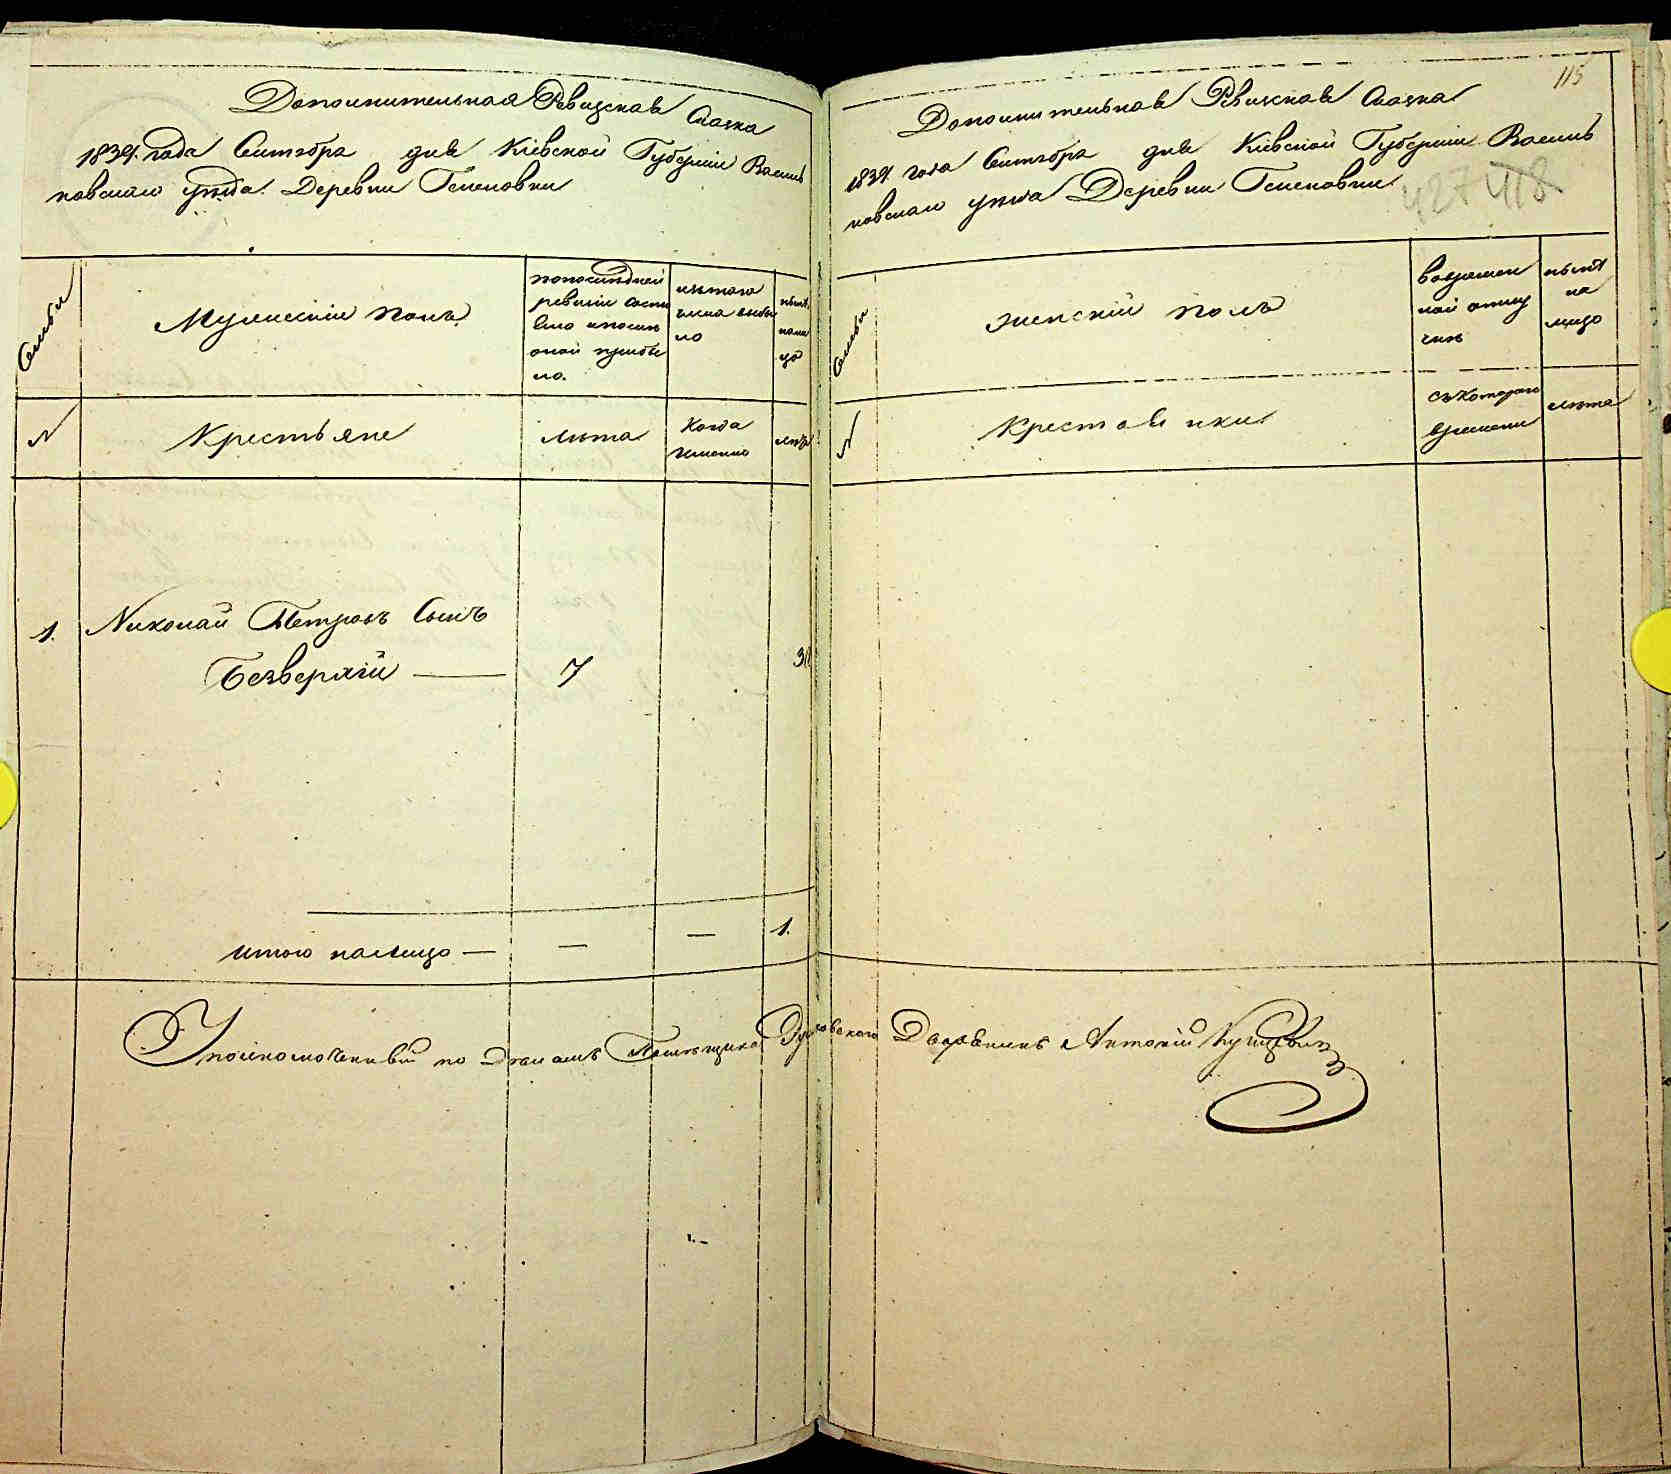 Дополнительная Ревизская Сказка
1834. года Сентября дня Кіевской Губерніи Василь
ковскаго уѣзда. Деревни
Семьи
Мужескій полъ.
попослѣдней
ревизіи состо
яло и послѣ
оной прибы
ло.
изтого
числа выбы
ло
нынѣ
нали
цо
№
Крестьяне
лѣта
Когда
именно
лѣта
1.
Николай Петровъ Сынъ
Безверхій — 7
итого налицо — — — 1.
115
Дополнительная Ревизская Сказка
1834 года Сентября дня Кіевской Губерніи Василь
ковскаго уѣзда Деревни
427 418
Семьи
Женскій полъ
вовремен
ной отлу
чкѣ
нынѣ
на
лицо
№
Крестьянки
съкотораго
времени
лѣта
Уполномоченный по дѣламъ Помѣщика Дворянинъ Антоній